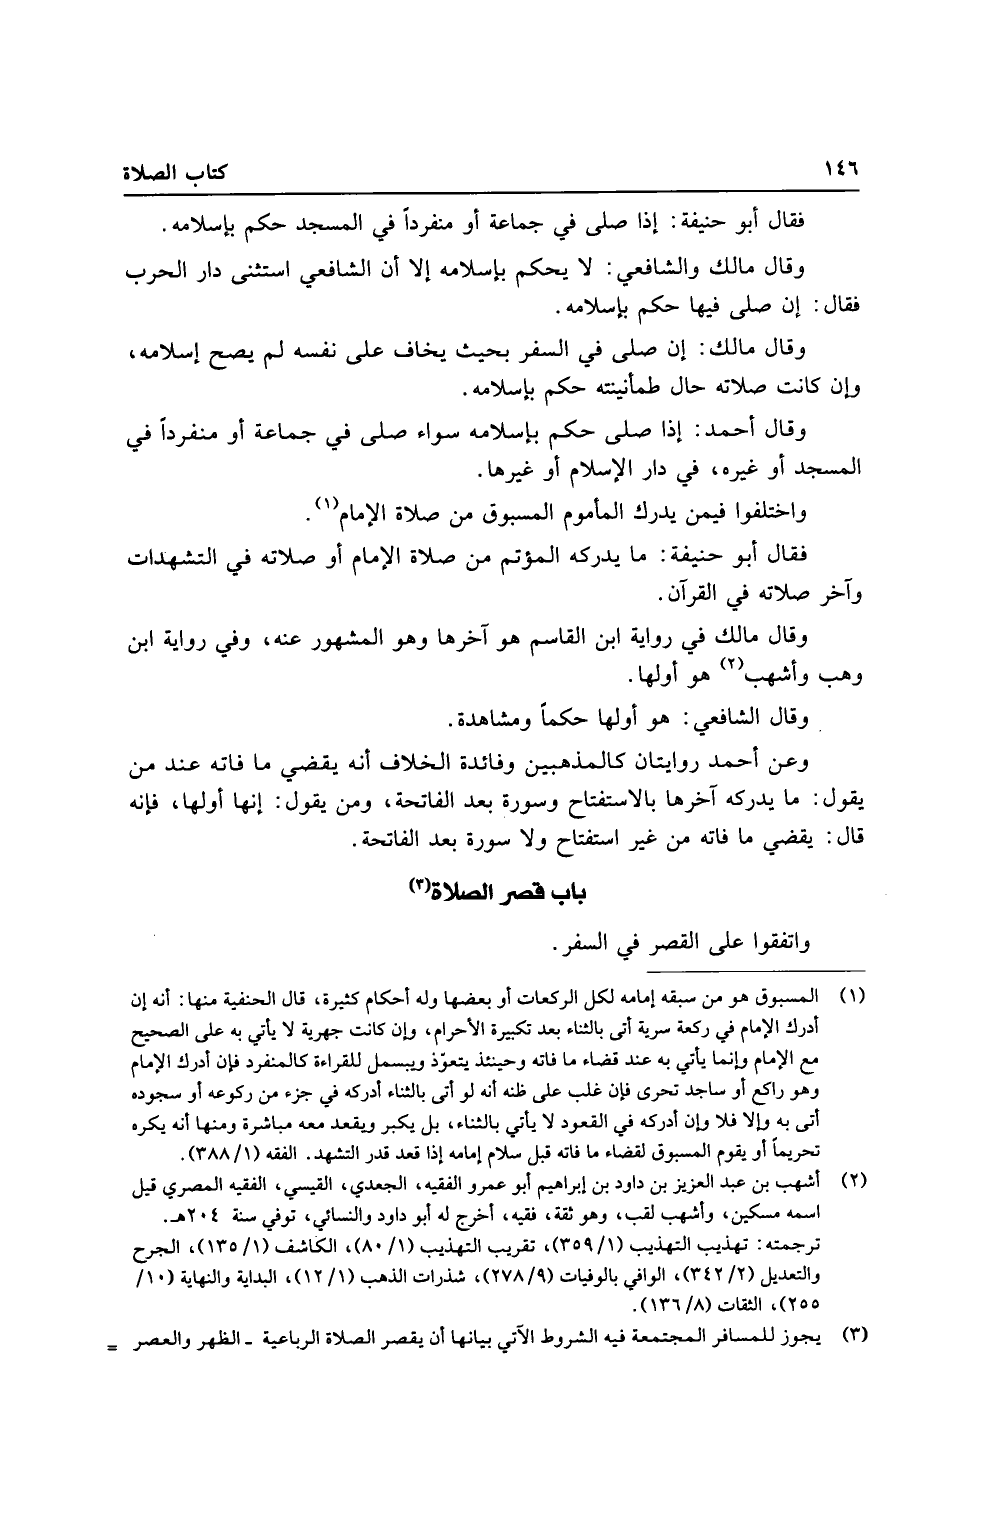 ١٤٦ كتاب الصلاة
فقال أبو حنيفة: إذا صلى في جماعة أو منفرداً في المسجد حكم بإسلامه.
وقال مالك والشافعي: لا يحكم بإسلامه إلا أن الشافعي استثنى دار الحرب
فقال: إن صلى فيها حكم بإسلامه.
وقال مالك: إن صلى في السفر بحيث يخاف على نفسه لم يصح إسلامه،
وإن كانت صلاته حال طمأنينته حكم بإسلامه.
وقال أحمد: إذا صلى حكم بإسلامه سواء صلى في جماعة أو منفرداً في
المسجد أو غيره، في دار الإسلام أو غيرها.
واختلفوا فيمن يدرك المأموم المسبوق من صلاة الإمام(١).
فقال أبو حنيفة: ما يدركه المؤتم من صلاة الإمام أو صلاته في التشهدات
وآخر صلاته في القرآن.
وقال مالك في رواية ابن القاسم هو آخرها وهو المشهور عنه، وفي رواية ابن
وهب وأشهب(٢) هو أولها.
وقال الشافعي: هو أولها حكماً ومشاهدة.
وعن أحمد روايتان كالمذهبين وفائدة الخلاف أنه يقضي ما فاته عند من
يقول: ما يدركه آخرها بالاستفتاح وسورة بعد الفاتحة، ومن يقول: إنها أولها، فإنه
قال: يقضي ما فاته من غير استفتاح ولا سورة بعد الفاتحة.
باب قصر الصلاة(٣)
واتفقوا على القصر في السفر.
(١) المسبوق هو من سبقه إمامه لكل الركعات أو بعضها وله أحكام كثيرة، قال الحنفية منها: أنه إن
أدرك الإمام في ركعة سرية أتى بالثناء بعد تكبيرة الأحرام، وإن كانت جهرية لا يأتي به على الصحيح
مع الإمام وإنما يأتي به عند قضاء ما فاته وحينئذ يتعوّذ ويبسمل للقراءة كالمنفرد فإن أدرك الإمام
وهو راكع أو ساجد تحرى فإن غلب على ظنه أنه لو أتى بالثناء أدركه في جزء من ركوعه أو سجوده
أتى به وإلا فلا وإن أدركه في القعود لا يأتي بالثناء، بل يكبر ويقعد معه مباشرة ومنها أنه يكره
تحريماً أو يقوم المسبوق لقضاء ما فاته قبل سلام إمامه إذا قعد قدر التشهد. الفقه (١/ ٣٨٨).
(٢) أشهب بن عبد العزيز بن داود بن إبراهيم أبو عمرو الفقيه، الجعدي، القيسي، الفقيه المصري قيل
اسمه مسكين، وأشهب لقب، وهو ثقة، فقيه، أخرج له أبو داود والنسائي، توفي سنة ٢٠٤هـ.
ترجمته: تهذيب التهذيب (١/ ٣٥٩)، تقريب التهذيب (١/ ٨٠)، الكاشف (١/ ١٣٥)، الجرح
والتعديل (٢/ ٣٤٢)، الوافي بالوفيات (٩/ ٢٧٨)، شذرات الذهب (١/ ١٢)، البداية والنهاية (١٠/
٢٥٥)، الثقات (٨/ ١٣٦).
(٣) يجوز للمسافر المجتمعة فيه الشروط الآتي بيانها أن يقصر الصلاة الرباعية ـ الظهر والعصر =